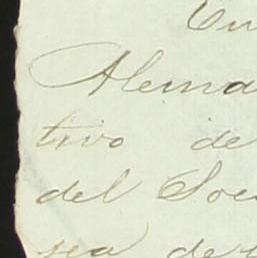 En
Alema
tivo de
del Soc
sea de